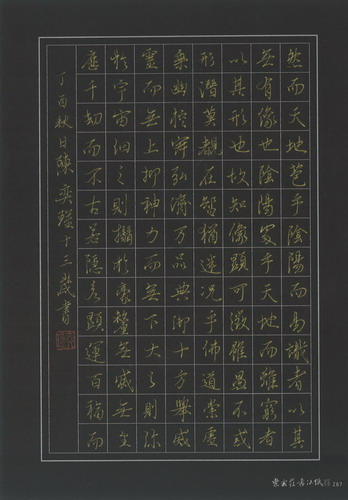 然而天地苞乎陰陽而易識者以其
無有像也陰陽處乎天地而難窮者
以其形也故知像顯可徵雖愚不惑
形潛莫覩在智猶迷況乎佛道崇虛
乘幽控寂弘濟万品典御十方舉威
靈而無上抑神力而無下大之則弥
於宇宙細之則攝於豪釐無滅無生
歷千劫而不古若隱若顯運百福而
丁酉秋日陳奕十三歲書